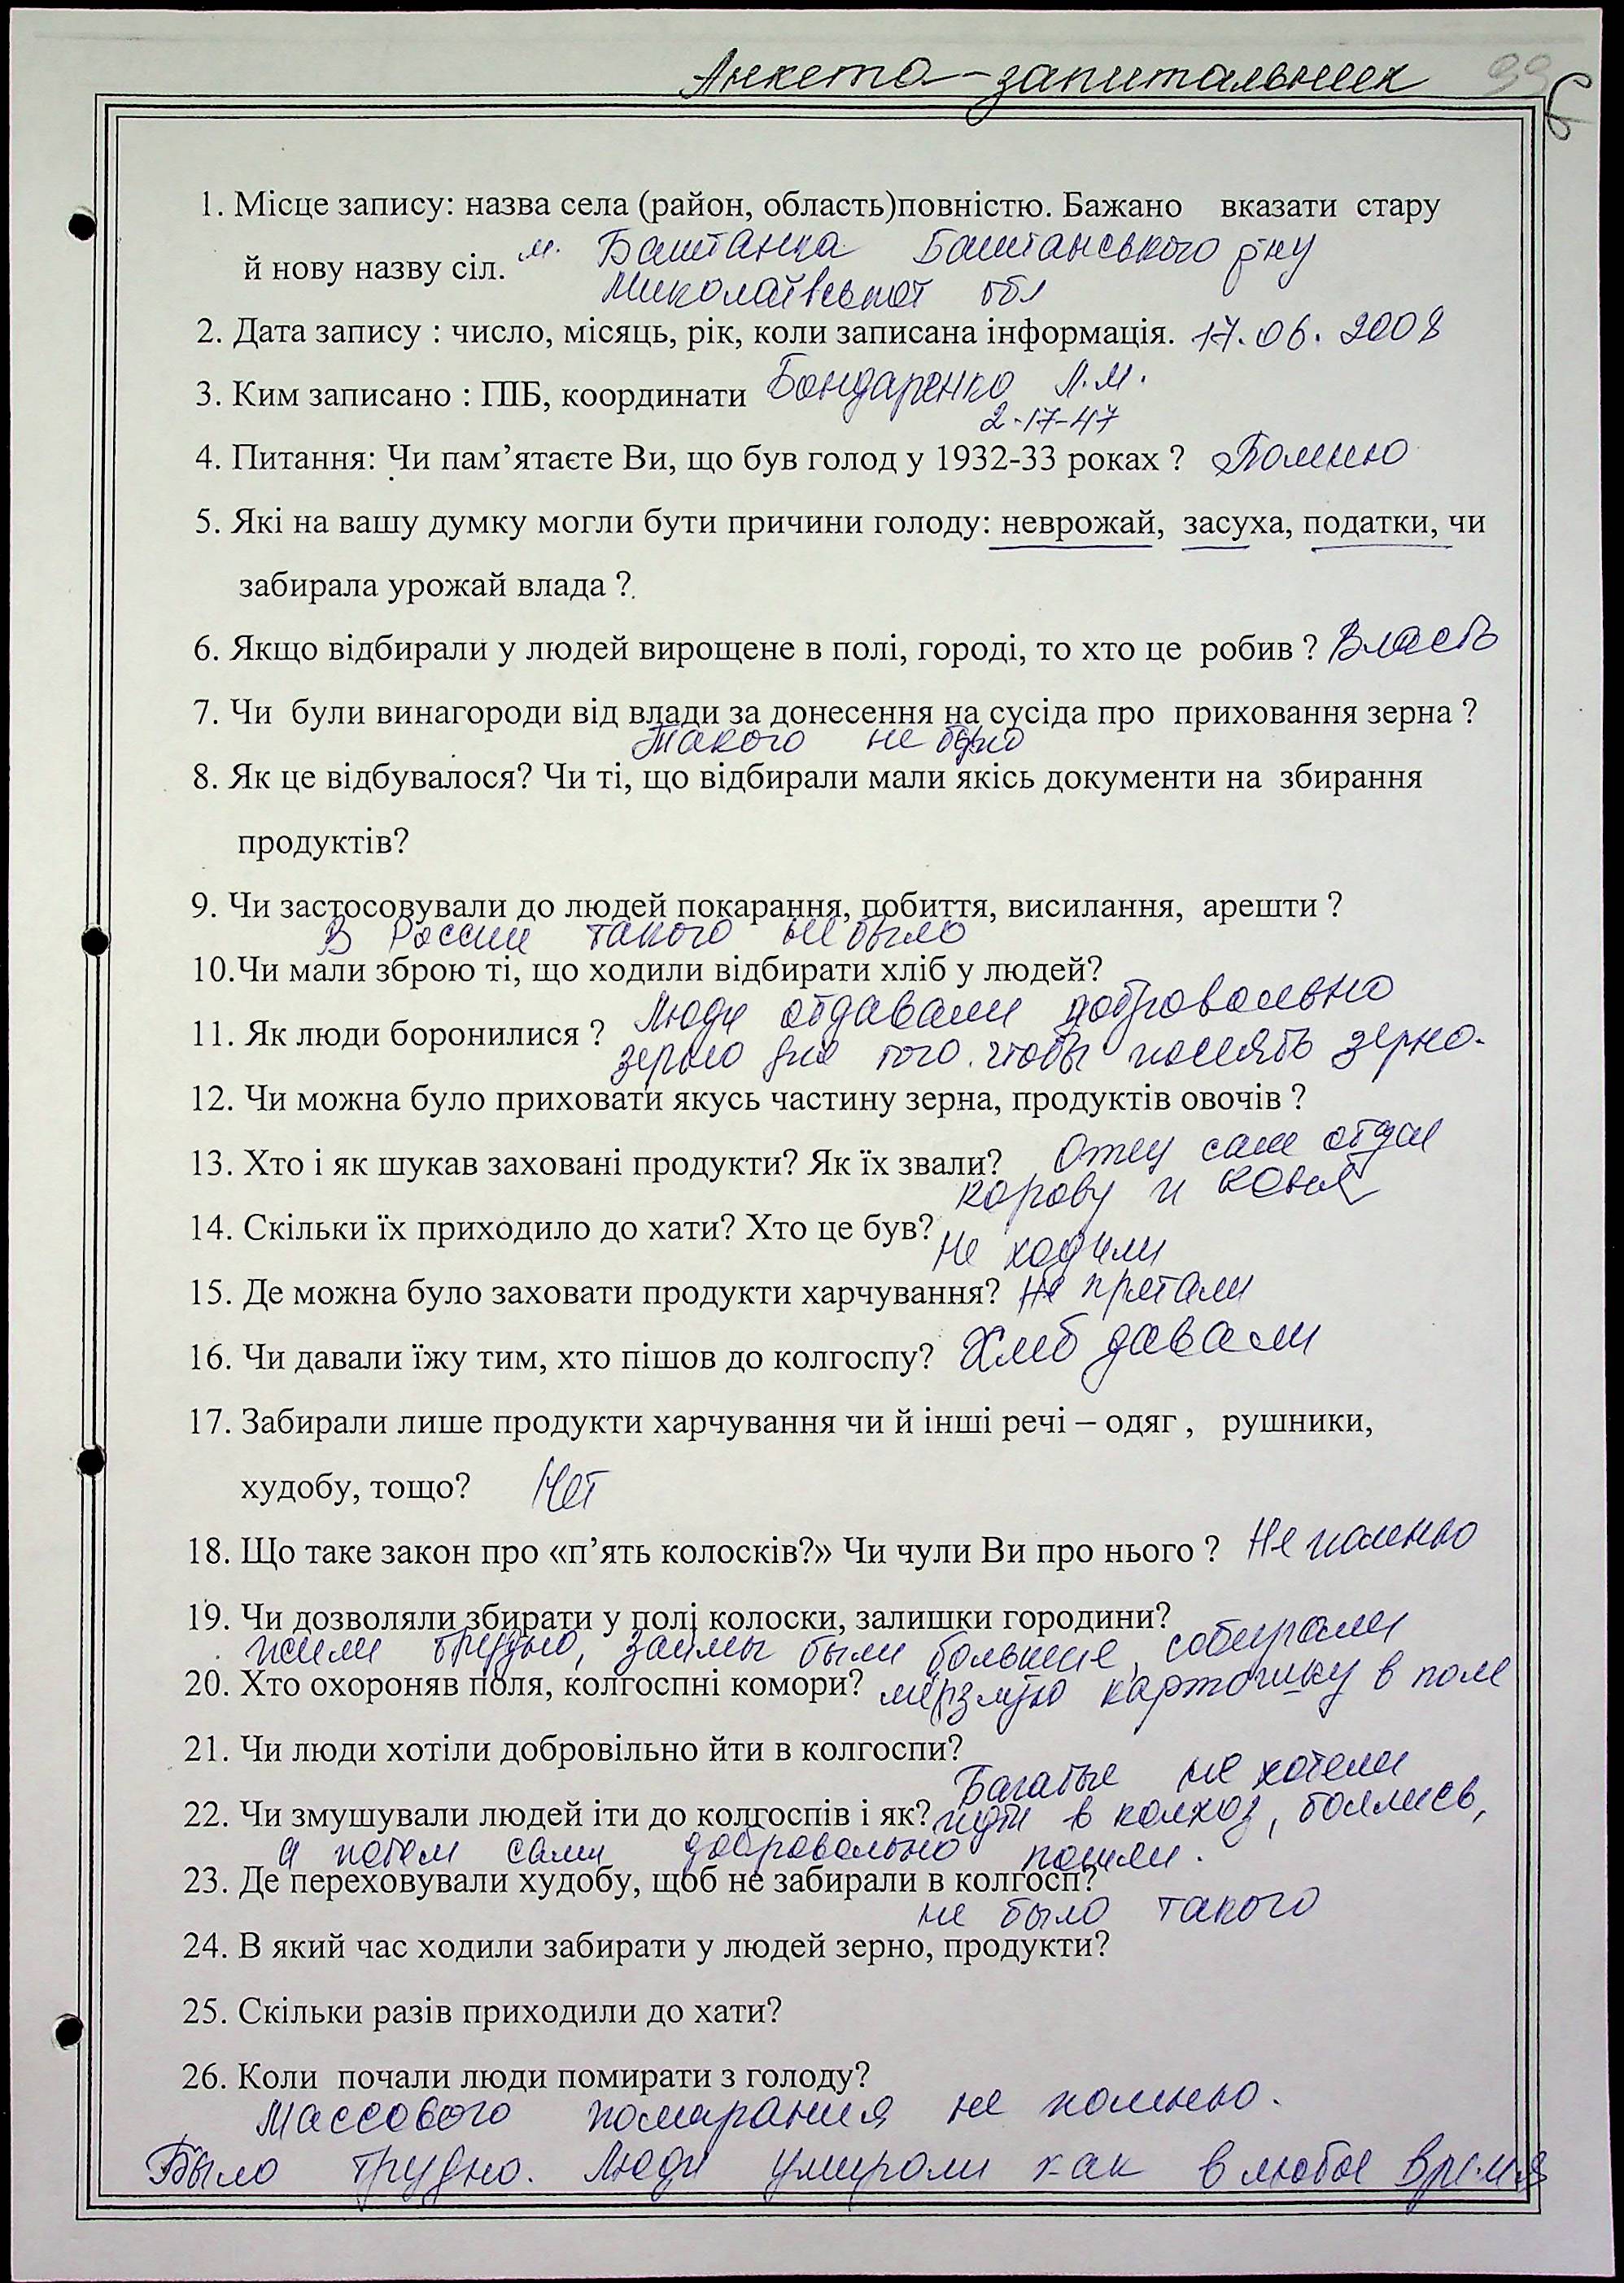 Анкета-запитальник
1. Місце запису: назва села (район, область)повністю. Бажано вказати стару
й нову назву сіл. м. Баштанка Баштанського р-ну
Миколаївської обл
2. Дата запису : число, місяць, рік, коли записана інформація. 17.06.2008
3. Ким записано : ПІБ, координати Бондаренко Л.М.
2-17-47
4. Питання: Чи пам’ятаєте Ви, що був голод у 1932-33 роках ? Помню
5. Які на вашу думку могли бути причини голоду: неврожай, засуха, податки, чи
забирала урожай влада ?
6. Якщо відбирали у людей вирощене в полі, городі, то хто це робив ? Власть
7. Чи були винагороди від влади за донесення на сусіда про приховання зерна ?
Такого не было
8. Як це відбувалося? Чи ті, що відбирали мали якісь документи на збирання
продуктів?
9. Чи застосовували до людей покарання, побиття, висилання, арешти ?
В России такого не было
10.Чи мали зброю ті, що ходили відбирати хліб у людей?
Люди отдавали добровольно
11. Як люди боронилися ?
зерно для того чтобы посеять зерно.
12. Чи можна було приховати якусь частину зерна, продуктів овочів ?
13. Хто і як шукав заховані продукти? Як їх звали? Отец сам отдал
корову и коня
14. Скільки їх приходило до хати? Хто це був?
Не ходили
15. Де можна було заховати продукти харчування? Не прятали
16. Чи давали їжу тим, хто пішов до колгоспу? Хлеб давали
17. Забирали лише продукти харчування чи й інші речі – одяг , рушники,
худобу, тощо? Нет
18. Що таке закон про «п’ять колосків?» Чи чули Ви про нього ? Не помню
19. Чи дозволяли збирати у полі колоски, залишки городини?
жили трудно, займы были большие, собирали
20. Хто охороняв поля, колгоспні комори? мёрзлую картошку в поле
21. Чи люди хотіли добровільно йти в колгоспи?
Багатые не хотели
22. Чи змушували людей іти до колгоспів і як? идти в колхоз, боялись,
а потом сами добровольно пошли.
23. Де переховували худобу, щоб не забирали в колгосп?
не было такого
24. В який час ходили забирати у людей зерно, продукти?
25. Скільки разів приходили до хати?
26. Коли почали люди помирати з голоду?
Массового помирания не помню.
Было трудно. Люди умирали как в любое время